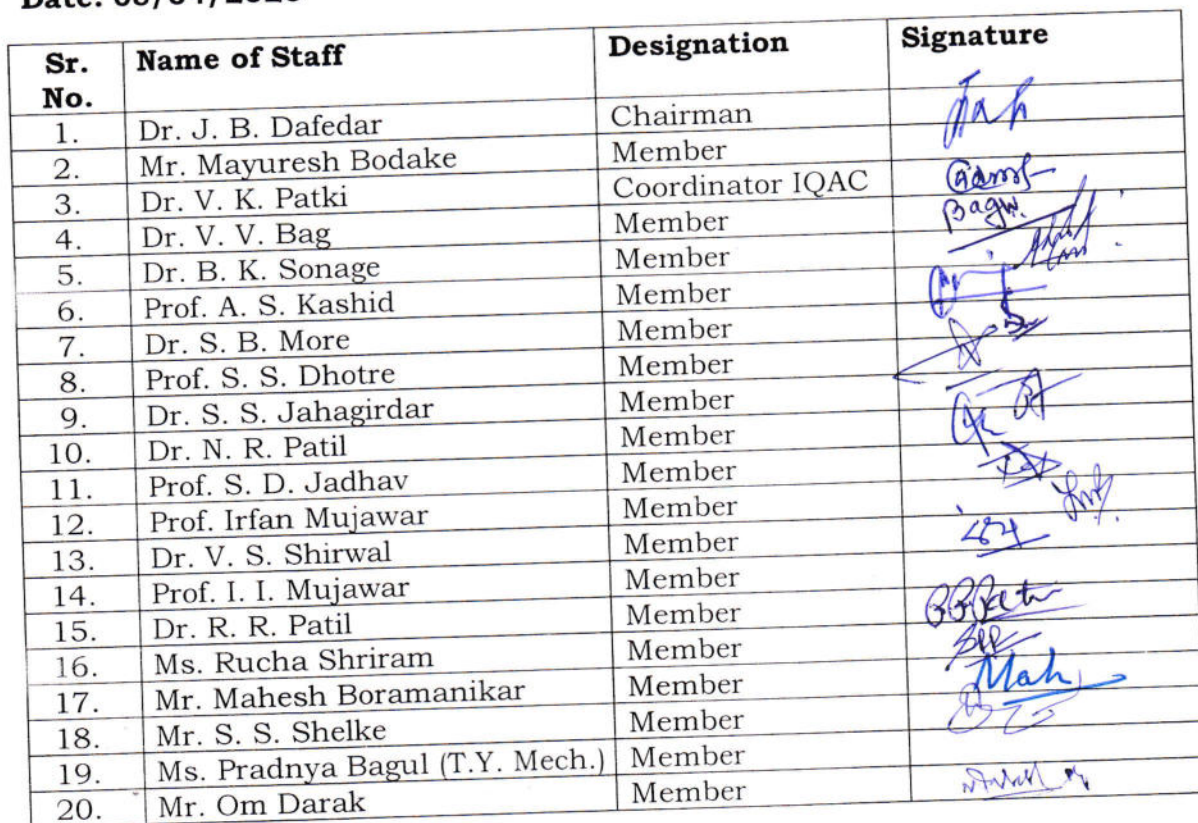 Sr. No. Name of Staff Designation Signature
1. Dr. J. B. Dafedar Chairman
2. Mr. Mayuresh Bodake Member
3. Dr. V. K. Patki Coordinator IQAC
4. Dr. V. V. Bag Member Bagw.
5. Dr. B. K. Sonage Member
6. Prof. A. S. Kashid Member
7. Dr. S. B. More Member
8. Prof. S. S. Dhotre Member
9. Dr. S. S. Jahagirdar Member
10. Dr. N. R. Patil Member
11. Prof. S. D. Jadhav Member
12. Prof. Irfan Mujawar Member
13. Dr. V. S. Shirwal Member
14. Prof. I. I. Mujawar Member
15. Dr. R. R. Patil Member
16. Ms. Rucha Shriram Member
17. Mr. Mahesh Boramanikar Member Mah
18. Mr. S. S. Shelke Member
19. Ms. Pradnya Bagul (T.Y. Mech.) Member
20. Mr. Om Darak Member